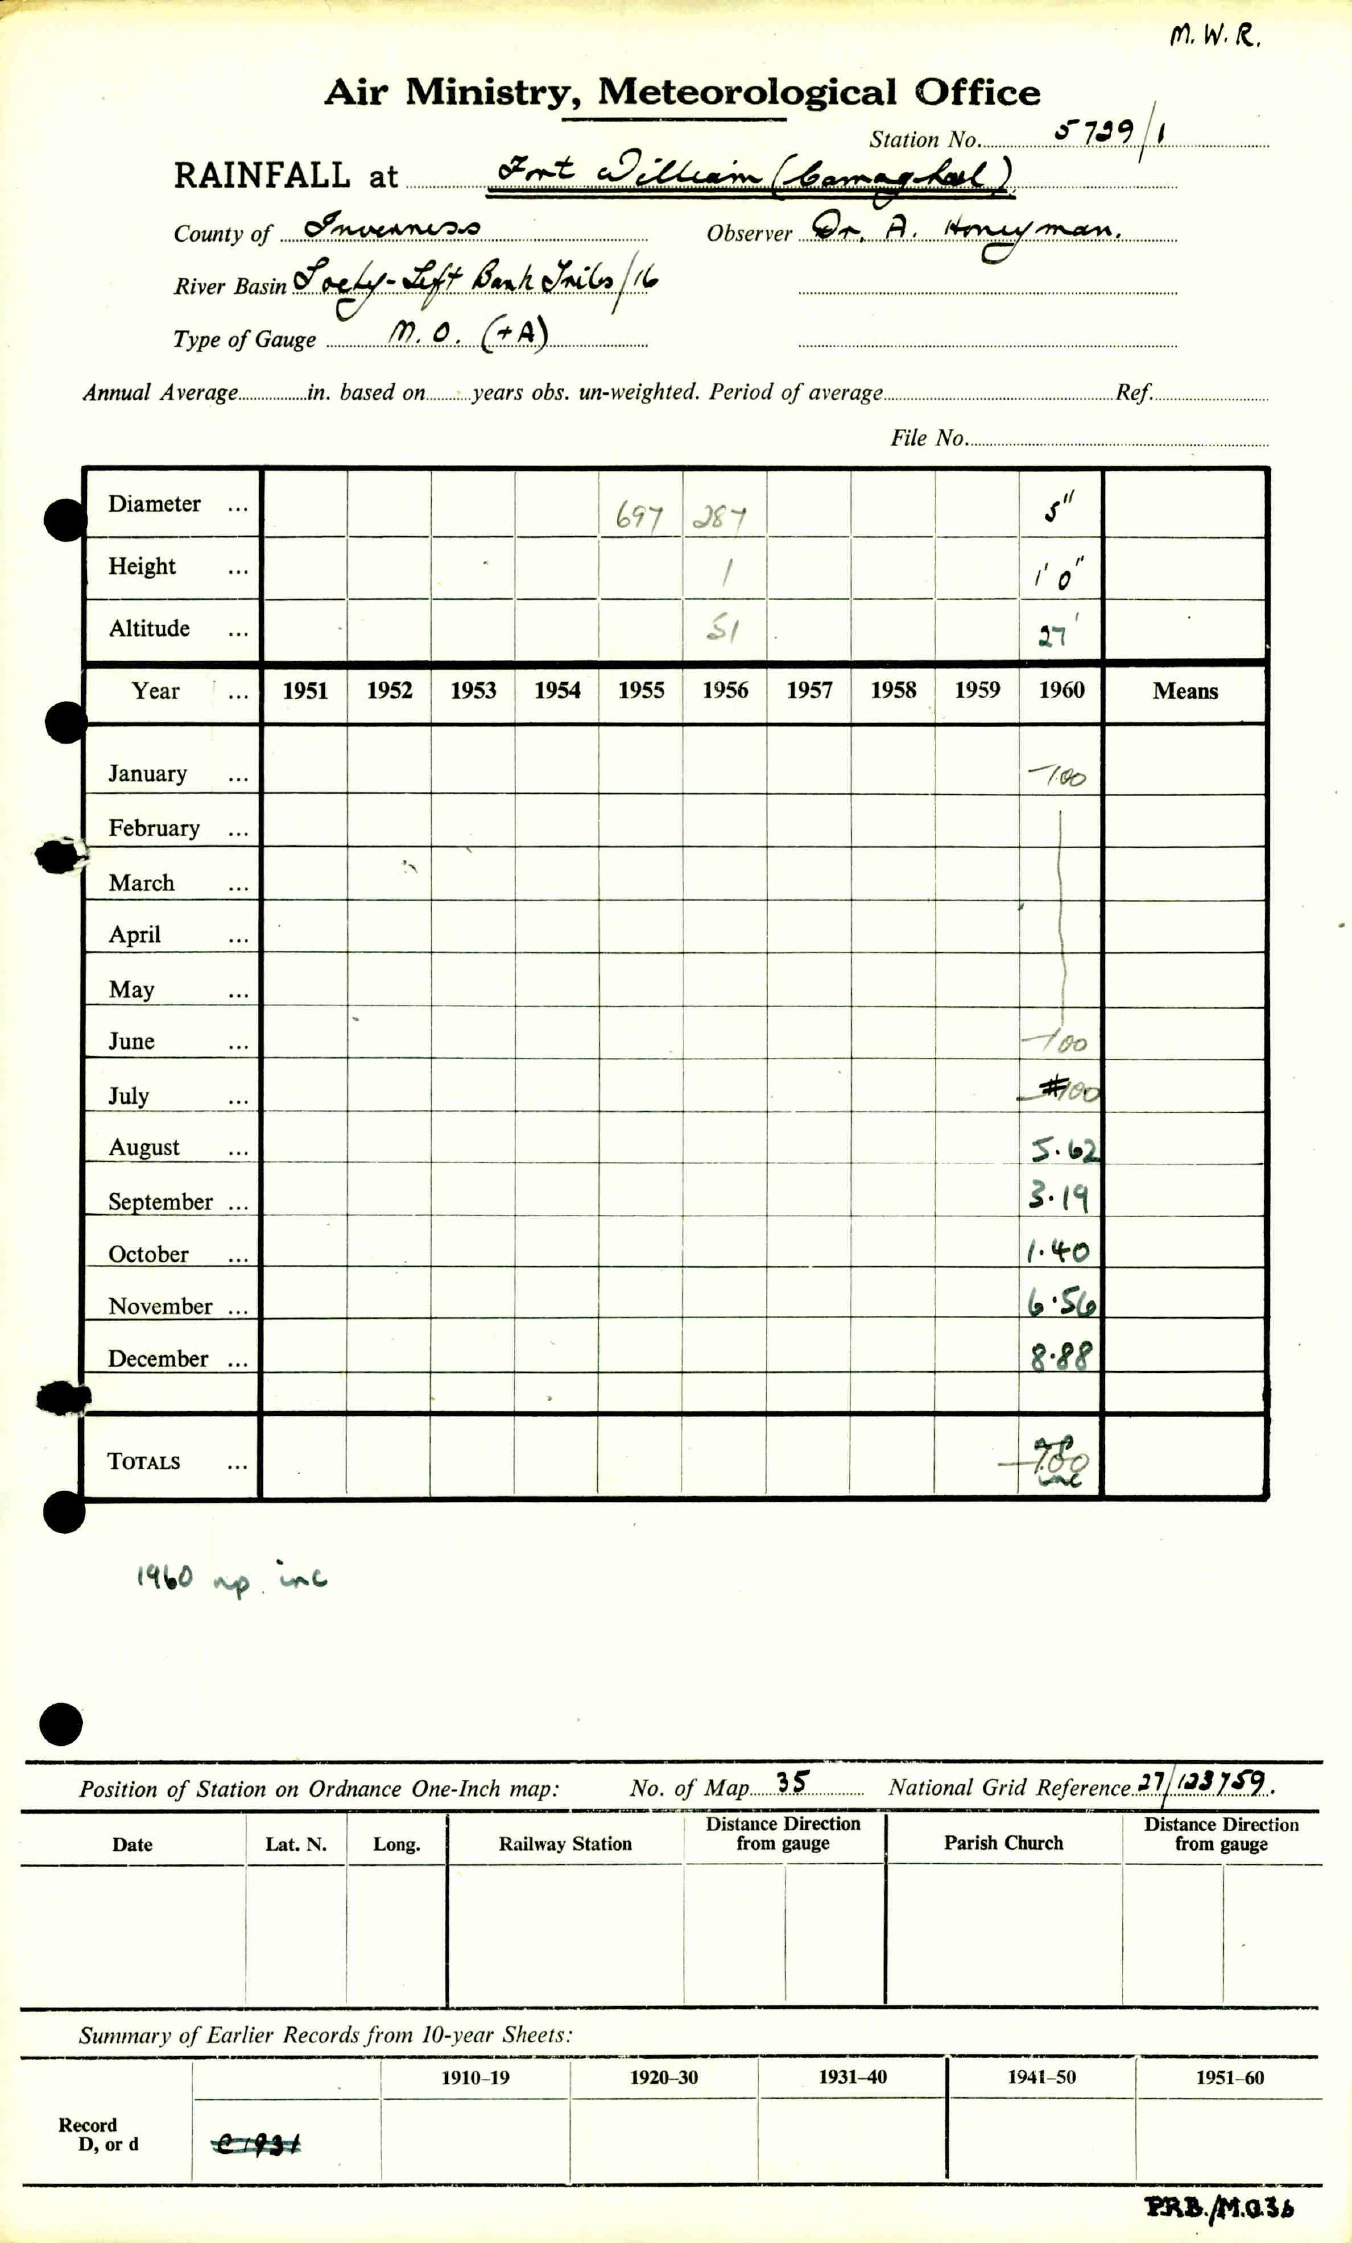 M. W. R.
Air Ministry, Meteorological Office
Station No. 5739/1
RAINFALL at Fort William (Camaghael)
County of Inverness Observer Dr. A. Honeyman.
River Basin Lochy-Left Bank Tribs/16
Type of Gauge M. O. (+A)
Annual Average in. based on years obs. un-weighted. Period of average Ref.
File No.
Diameter ... 697 287 5"
Height ... 1 1' 0"
Altitude ... 51 27'
Year ... 1951 1952 1953 1954 1955 1956 1957 1958 1959 1960 Means
January ... -100
February ...
March ...
April ...
May ...
June ... -100
July ... 100
August ... 5.62
September ... 3.19
October ... 1.40
November ... 6.56
December ... 8.88
TOTALS ... inc
1960 np. inc
Position of Station on Ordnance One-Inch map: No. of Map 35 National Grid Reference 27/123759.
Date Lat. N. Long. Railway Station Distance Direction from gauge Parish Church Distance Direction from gauge
Summary of Earlier Records from 10-year Sheets:
1910-19 1920-30 1931-40 1941-50 1951-60
Record
D, or d C1931
P.R.B./M.O.36